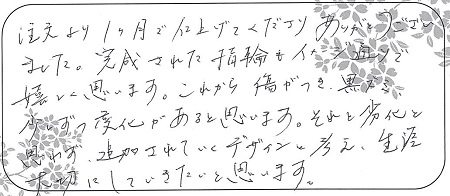 注文より1ヶ月で仕上げてくださりありがとうござい
ました。完成された指輪もイメージ通りで
嬉しく思います。これから傷がつき、黒ずみ、
少しずつ変化があると思います。それを劣化と
思わず、追加されていくデザインと考え、生涯
大切にしていきたいと思います。